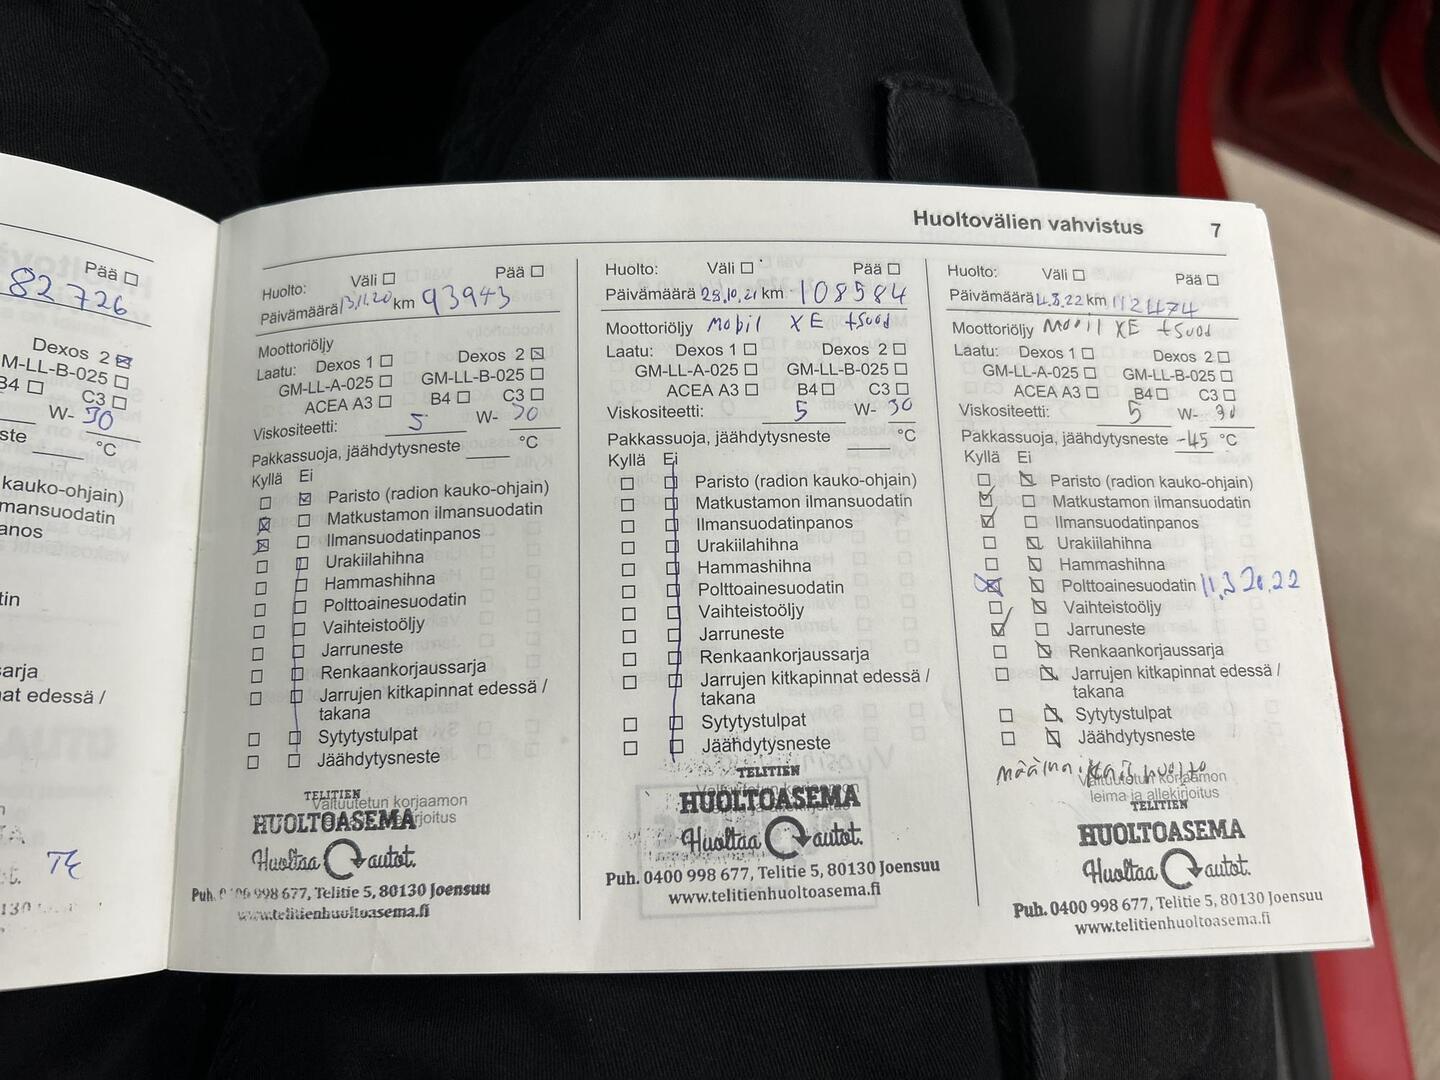 Huoltovälien vahvistus 7
Pää
82 726
Dexos 2
M-LL-B-025
B4 C3
W- 30
°C
kauko-ohjain)
ilmansuodatin
anos
nat edessä /
TK
Huolto: Väli Pää
Päivämäärä 13.11.20 km 93943
Moottoriöljy
Laatu: Dexos 1 Dexos 2
GM-LL-A-025 GM-LL-B-025
ACEA A3 B4 C3
Viskositeetti: 5 W- 30
Pakkassuoja, jäähdytysneste °C
Kyllä Ei
Paristo (radion kauko-ohjain)
Matkustamon ilmansuodatin
Ilmansuodatinpanos
Urakiilahihna
Hammashihna
Polttoainesuodatin
Vaihteistoöljy
Jarruneste
Renkaankorjaussarja
Jarrujen kitkapinnat edessä /
takana
Sytytystulpat
Jäähdytysneste
Valtuutetun korjaamon
TELITIEN
HUOLTOASEMA
Huoltaa autot.
998 677, Telitie 5, 80130 Joensuu
www.telitienhuoltoasema.fi
Huolto: Väli Pää
Päivämäärä 28.10.21 km 108584
Moottoriöljy Mobil XE
Laatu: Dexos 1 Dexos 2
GM-LL-A-025 GM-LL-B-025
ACEA A3 B4 C3
Viskositeetti: 5 W- 30
Pakkassuoja, jäähdytysneste °C
Kyllä Ei
Paristo (radion kauko-ohjain)
Matkustamon ilmansuodatin
Ilmansuodatinpanos
Urakiilahihna
Hammashihna
Polttoainesuodatin
Vaihteistoöljy
Jarruneste
Renkaankorjaussarja
Jarrujen kitkapinnat edessä /
takana
Sytytystulpat
Jäähdytysneste
TELITIEN
HUOLTOASEMA
Huoltaa autot.
Puh. 0400 998 677, Telitie 5, 80130 Joensuu
www.telitienhuoltoasema.fi
Huolto: Väli Pää
Päivämäärä 4.8.22 km 112474
Moottoriöljy Mobil XE
Laatu: Dexos 1 Dexos 2
GM-LL-A-025 GM-LL-B-025
ACEA A3 B4 C3
Viskositeetti: 5 W- 30
Pakkassuoja, jäähdytysneste -45 °C
Kyllä Ei
Paristo (radion kauko-ohjain)
Matkustamon ilmansuodatin
Ilmansuodatinpanos
Urakiilahihna
Hammashihna
Polttoainesuodatin
Vaihteistoöljy
Jarruneste
Renkaankorjaussarja
Jarrujen kitkapinnat edessä /
takana
Sytytystulpat
Jäähdytysneste
huolto
Valtuutetun korjaamon
leima ja allekirjoitus
TELITIEN
HUOLTOASEMA
Huoltaa autot.
Puh. 0400 998 677, Telitie 5, 80130 Joensuu
www.telitienhuoltoasema.fi